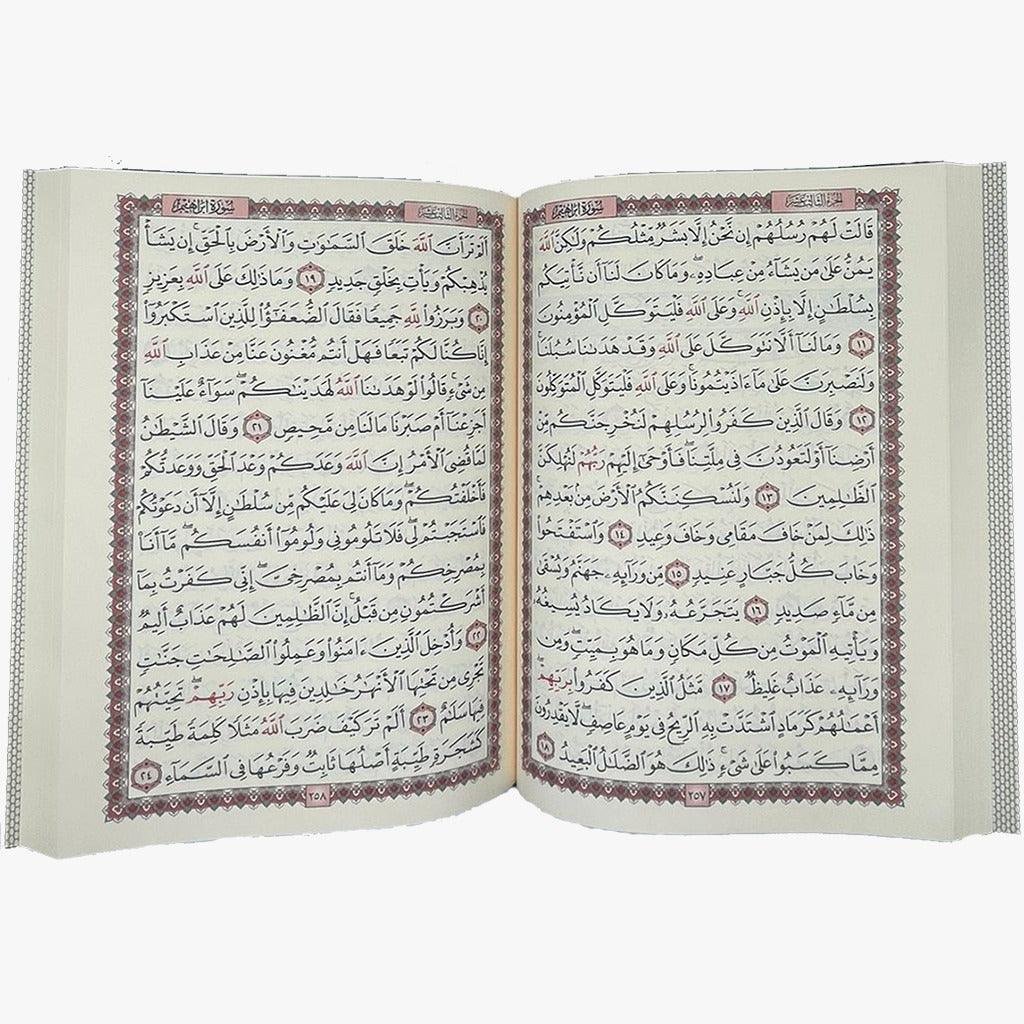 الجزء الثالث عشر
سورة إبراهيم
قَالَتْ لَهُمْ رُسُلُهُمْ إِن نَّحْنُ إِلَّا بَشَرٌ مِّثْلُكُمْ وَلَٰكِنَّ ٱللَّهَ
يَمُنُّ عَلَىٰ مَن يَشَآءُ مِنْ عِبَادِهِۦ ۖ وَمَا كَانَ لَنَآ أَن نَّأْتِيَكُم
بِسُلْطَٰنٍ إِلَّا بِإِذْنِ ٱللَّهِ ۚ وَعَلَى ٱللَّهِ فَلْيَتَوَكَّلِ ٱلْمُؤْمِنُونَ
١١ وَمَا لَنَآ أَلَّا نَتَوَكَّلَ عَلَى ٱللَّهِ وَقَدْ هَدَىٰنَا سُبُلَنَا ۚ
وَلَنَصْبِرَنَّ عَلَىٰ مَآ ءَاذَيْتُمُونَا ۚ وَعَلَى ٱللَّهِ فَلْيَتَوَكَّلِ ٱلْمُتَوَكِّلُونَ
١٢ وَقَالَ ٱلَّذِينَ كَفَرُوا۟ لِرُسُلِهِمْ لَنُخْرِجَنَّكُم مِّنْ
أَرْضِنَآ أَوْ لَتَعُودُنَّ فِى مِلَّتِنَا ۖ فَأَوْحَىٰٓ إِلَيْهِمْ رَبُّهُمْ لَنُهْلِكَنَّ
ٱلظَّٰلِمِينَ ١٣ وَلَنُسْكِنَنَّكُمُ ٱلْأَرْضَ مِنۢ بَعْدِهِمْ ۚ
ذَٰلِكَ لِمَنْ خَافَ مَقَامِى وَخَافَ وَعِيدِ ١٤ وَٱسْتَفْتَحُوا۟
وَخَابَ كُلُّ جَبَّارٍ عَنِيدٍ ١٥ مِّن وَرَآئِهِۦ جَهَنَّمُ وَيُسْقَىٰ
مِن مَّآءٍ صَدِيدٍ ١٦ يَتَجَرَّعُهُۥ وَلَا يَكَادُ يُسِيغُهُۥ
وَيَأْتِيهِ ٱلْمَوْتُ مِن كُلِّ مَكَانٍ وَمَا هُوَ بِمَيِّتٍ ۖ وَمِن
وَرَآئِهِۦ عَذَابٌ غَلِيظٌ ١٧ مَّثَلُ ٱلَّذِينَ كَفَرُوا۟ بِرَبِّهِمْ ۖ
أَعْمَٰلُهُمْ كَرَمَادٍ ٱشْتَدَّتْ بِهِ ٱلرِّيحُ فِى يَوْمٍ عَاصِفٍ ۖ لَّا يَقْدِرُونَ
مِمَّا كَسَبُوا۟ عَلَىٰ شَىْءٍ ۚ ذَٰلِكَ هُوَ ٱلضَّلَٰلُ ٱلْبَعِيدُ ١٨
٢٥٧
الجزء الثالث عشر
سورة إبراهيم
أَلَمْ تَرَ أَنَّ ٱللَّهَ خَلَقَ ٱلسَّمَٰوَٰتِ وَٱلْأَرْضَ بِٱلْحَقِّ ۚ إِن يَشَأْ
يُذْهِبْكُمْ وَيَأْتِ بِخَلْقٍ جَدِيدٍ ١٩ وَمَا ذَٰلِكَ عَلَى ٱللَّهِ بِعَزِيزٍ
٢٠ وَبَرَزُوا۟ لِلَّهِ جَمِيعًا فَقَالَ ٱلضُّعَفَٰٓؤُا۟ لِلَّذِينَ ٱسْتَكْبَرُوٓا۟
إِنَّا كُنَّا لَكُمْ تَبَعًا فَهَلْ أَنتُم مُّغْنُونَ عَنَّا مِنْ عَذَابِ ٱللَّهِ
مِن شَىْءٍ ۚ قَالُوا۟ لَوْ هَدَىٰنَا ٱللَّهُ لَهَدَيْنَٰكُمْ ۖ سَوَآءٌ عَلَيْنَآ
أَجَزِعْنَآ أَمْ صَبَرْنَا مَا لَنَا مِن مَّحِيصٍ ٢١ وَقَالَ ٱلشَّيْطَٰنُ
لَمَّا قُضِىَ ٱلْأَمْرُ إِنَّ ٱللَّهَ وَعَدَكُمْ وَعْدَ ٱلْحَقِّ وَوَعَدتُّكُمْ
فَأَخْلَفْتُكُمْ ۖ وَمَا كَانَ لِىَ عَلَيْكُم مِّن سُلْطَٰنٍ إِلَّآ أَن دَعَوْتُكُمْ
فَٱسْتَجَبْتُمْ لِى ۖ فَلَا تَلُومُونِى وَلُومُوٓا۟ أَنفُسَكُم ۖ مَّآ أَنَا۠
بِمُصْرِخِكُمْ وَمَآ أَنتُم بِمُصْرِخِىَّ ۖ إِنِّى كَفَرْتُ بِمَآ
أَشْرَكْتُمُونِ مِن قَبْلُ ۗ إِنَّ ٱلظَّٰلِمِينَ لَهُمْ عَذَابٌ أَلِيمٌ
٢٢ وَأُدْخِلَ ٱلَّذِينَ ءَامَنُوا۟ وَعَمِلُوا۟ ٱلصَّٰلِحَٰتِ جَنَّٰتٍ
تَجْرِى مِن تَحْتِهَا ٱلْأَنْهَٰرُ خَٰلِدِينَ فِيهَا بِإِذْنِ رَبِّهِمْ ۖ تَحِيَّتُهُمْ
فِيهَا سَلَٰمٌ ٢٣ أَلَمْ تَرَ كَيْفَ ضَرَبَ ٱللَّهُ مَثَلًا كَلِمَةً طَيِّبَةً
كَشَجَرَةٍ طَيِّبَةٍ أَصْلُهَا ثَابِتٌ وَفَرْعُهَا فِى ٱلسَّمَآءِ ٢٤
٢٥٨